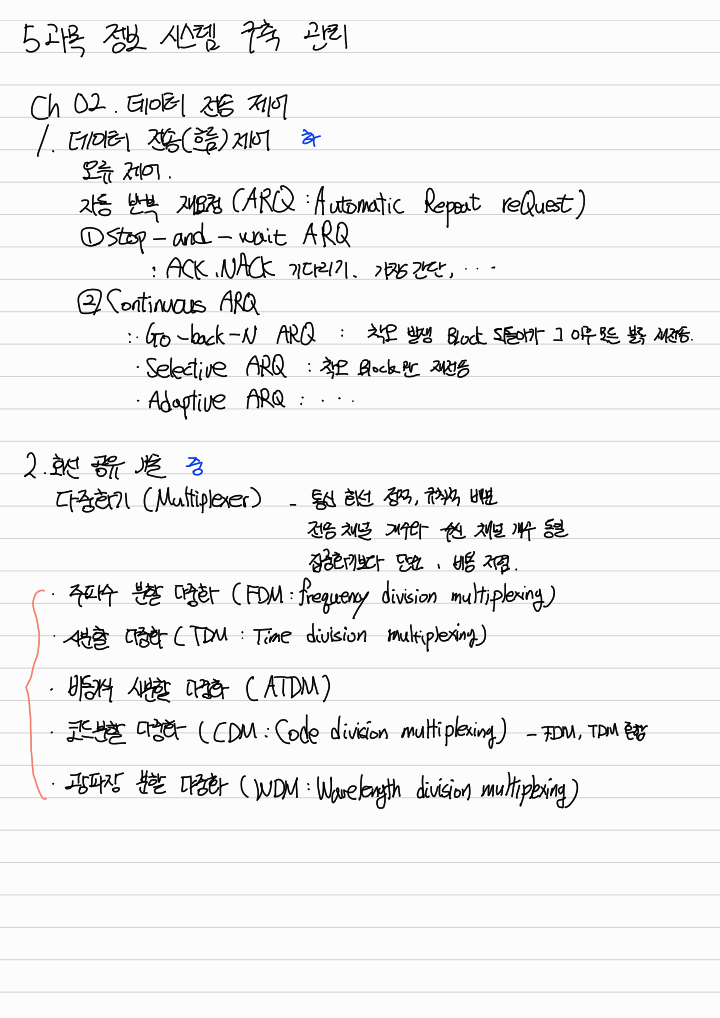 5과목 정보 시스템 구축 관리
Ch 02. 데이터 전송 제어
1. 데이터 전송(흐름)제어 하
오류 제어.
자동 반복 재요청(ARQ : Automatic Repeat reQuest)
①Stop-and-wait ARQ
: ACK, NACK 기다리기. 가장 간단, ...
②Continuous ARQ
: · Go-back-N ARQ : 착오 발생 Block 되돌아가 그 이후 모든 블록 재전송.
· Selective ARQ : 착오 Block만 재전송
· Adaptive ARQ : ...
2. 회선 공유 기술 중
다중화기 (Multiplexer) - 통신 회선 정적, 규칙적 배분
전송 채널 개수와 수신 채널 개수 동일
집중화기보다 단순, 비용 저렴.
· 주파수 분할 다중화 (FDM : frequency division multiplexing)
· 시분할 다중화 (TDM : Time division multiplexing)
· 비동기식 시분할 다중화 (ATDM)
· 코드분할 다중화 (CDM : Code division multiplexing) - FDM, TDM 혼합
· 광파장 분할 다중화 (WDM : Wavelength division multiplexing)